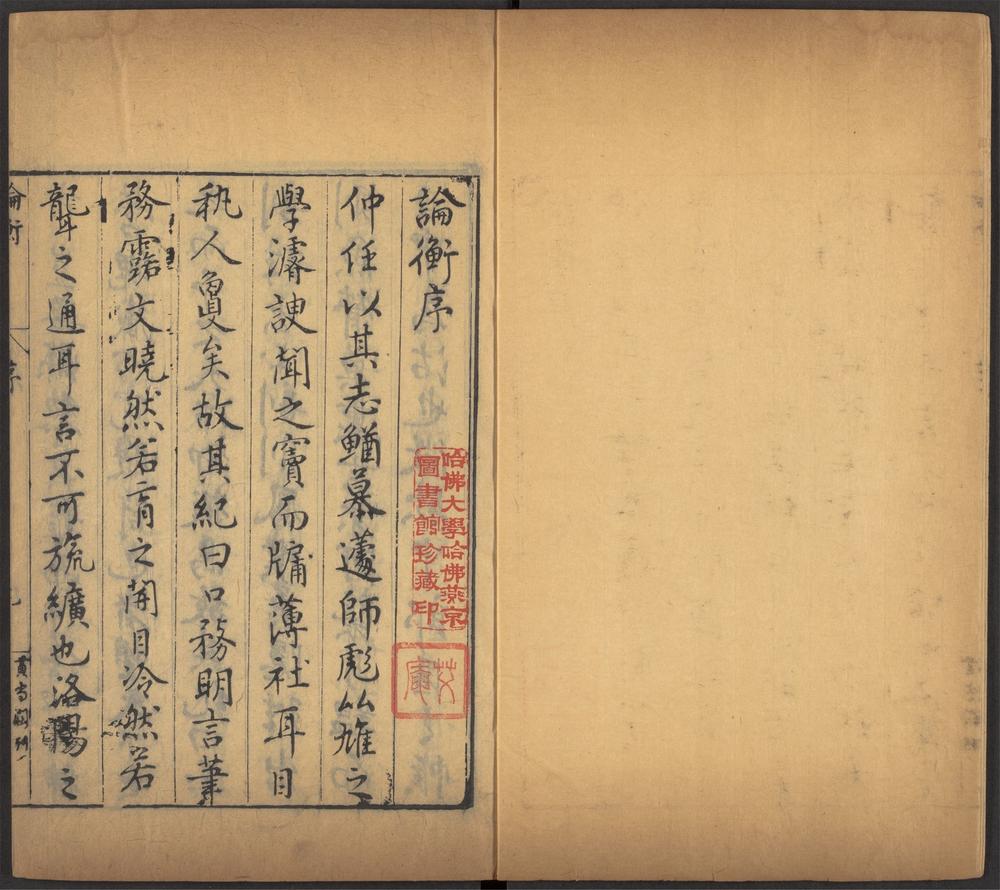 論衡序
仲任以其志鰌慕蘧師彪以雄之
學濬諛聞之竇而牖薄社耳目
人矣故其紀曰口務明言筆
務露文曉然若肓之開目冷然若
聾之通耳言不可㫍纊也洛陽之
論衡
序
哈佛大學哈佛燕京
圖書館珍藏印